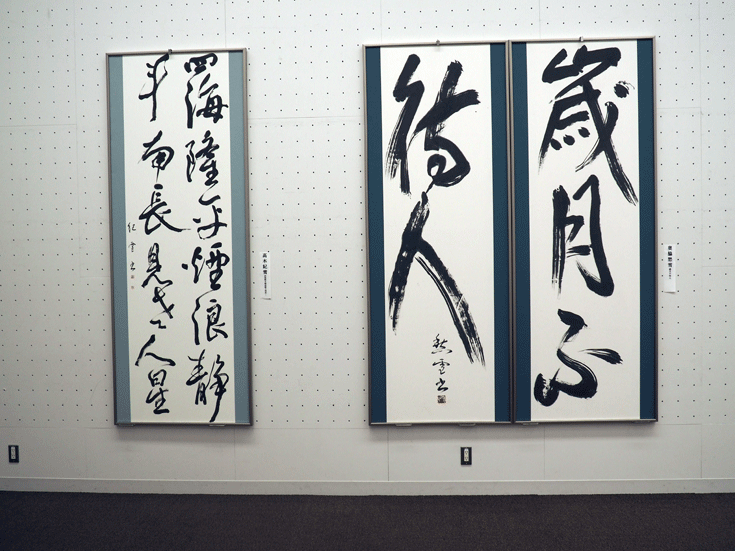 歳月不
待人
愁雲書
四海隆平煙浪静
斗南長見老人星
紀雲書